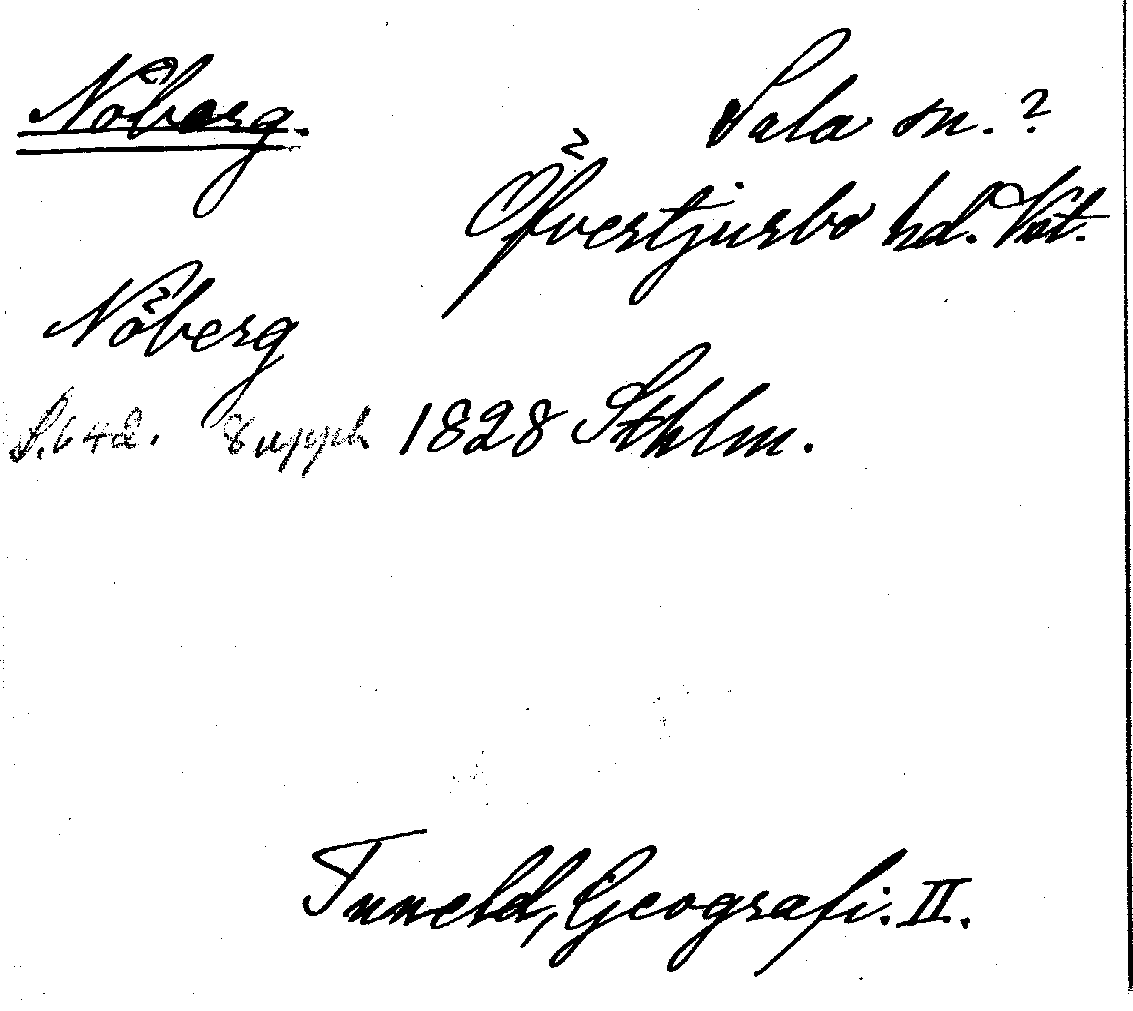 Nöberg. Sala sn. ?
Öfvertjurbo hd. Vst.
Nöberg
S. 642. 8 uppl. 1828 Sthlm.
Tuneld, Geografi. II.